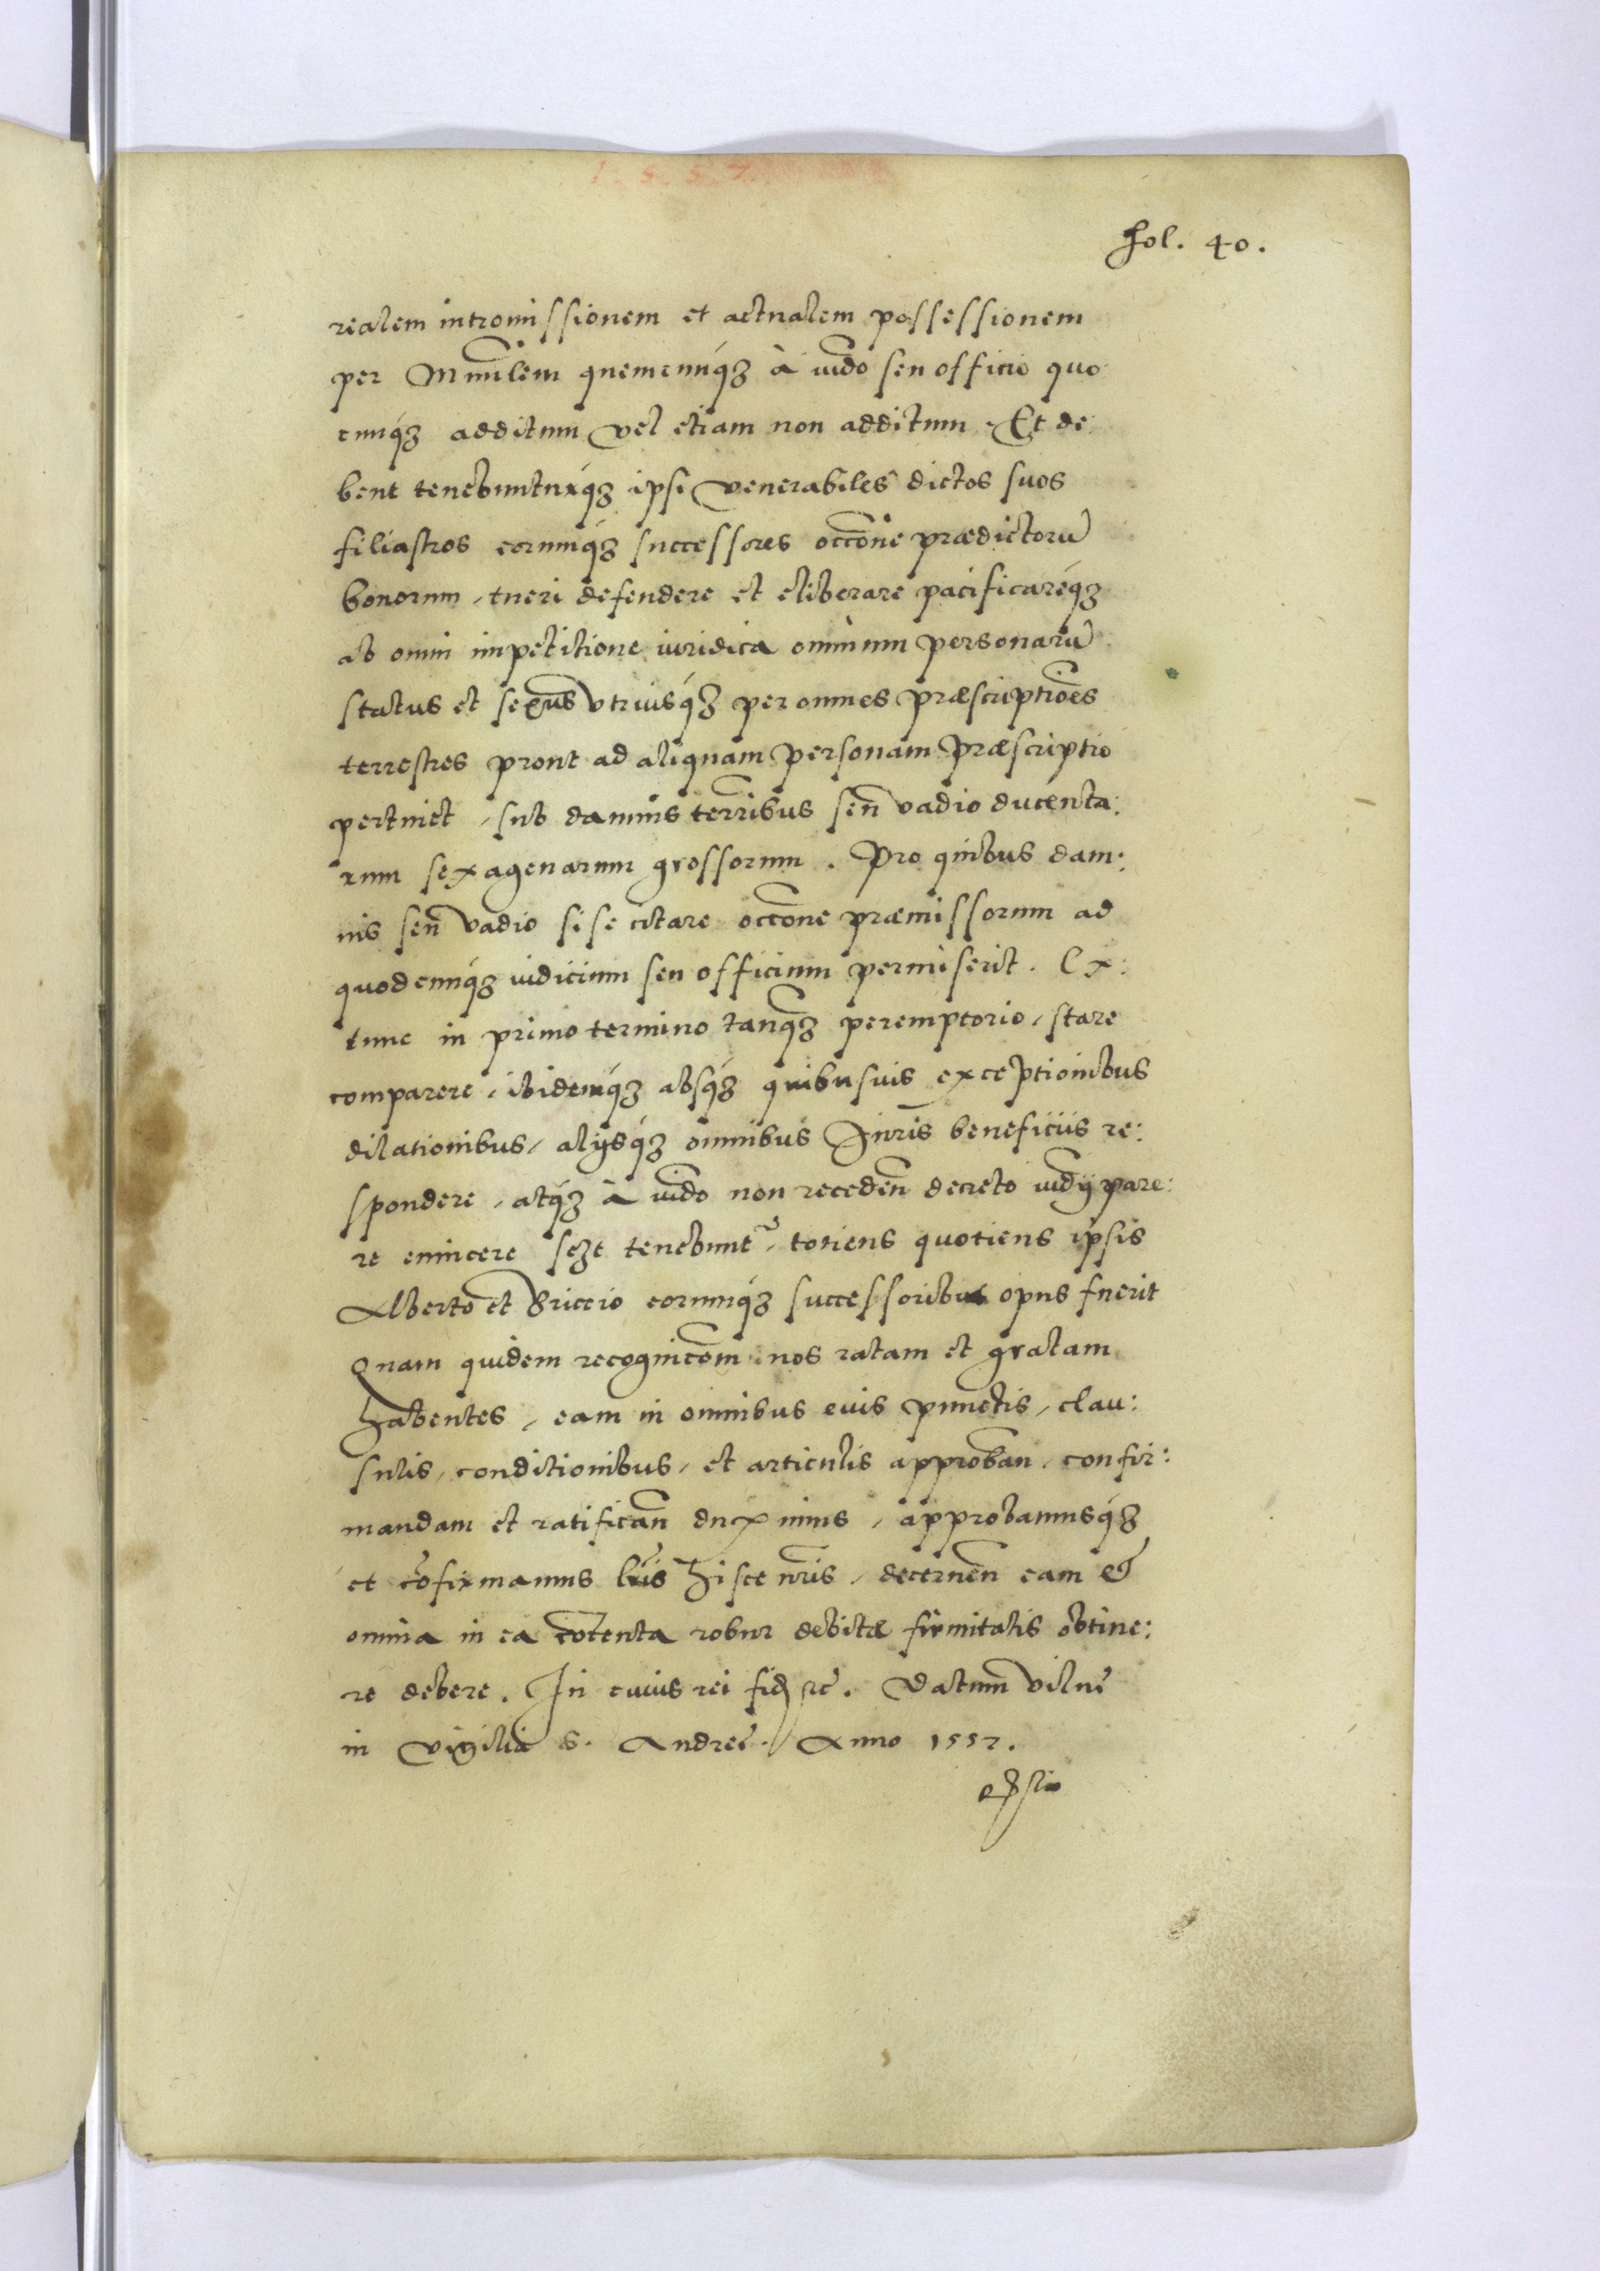 1557
fol. 40.
realem intromissionem et actualem possessionem
per Mīnilem quemcunq̃ʒ à iud̃o seu officio quo
cunq̃ʒ additum vel etiam non additum. Et de:
bent tenebunturq̃ʒ ipsi venerabiles dictos suos
filiastros eorumq̃ʒ successores occ̃one prædictorũ
bonorum, tueri defendere et eliberare pacificareq̃ʒ
ab omni impetitione iuridica omnium personarũ
status et sexus utriusq̃ʒ per omnes præscriptiões
terrestres prout ad aliquam personam præscriptio
pertinet, sub damnis terr̃ibus seu vadio ducenta:
rum sexagenarum grossorum. Pro quibus dam:
nis seu vadio si se citare occ̃one præmissorum ad
quodcunq̃ʒ iudicium seu officium permiserit. Ex:
tunc in primo termino tanq̃ʒ peremptorio, stare
comparere, ibidemq̃ʒ absq̃ʒ quibusuis exceptionibus
dilationibus, alijsq̃ʒ omnibus Iuris beneficiis re:
spondere, atq̃ʒ à iud̃o non receden̄ decreto iud̃ij pare:
re euincere seʒt tenebunt̃, totiens quotiens ipsis
Alberto et Briccio eorumq̃ʒ successoribus opus fuerit
Quam quidem recognic̃om nos ratam et gratam
habentes, eam in omnibus euis punctis, clau:
sulis, conditionibus, et articulis approban̄, confir:
mandam et ratifican̄ duximus, approbamusq̃ʒ
et cõfirmamus lr̃is hisce nr̃is, decernen̄ eam et
omnia in ea cõtenta robur debitæ firmitatis obtine:
re debere. In cuius rei fid̃ ꝛc̃. Datum Vilnę
in vigilia S. Andreę. Anno 1557.